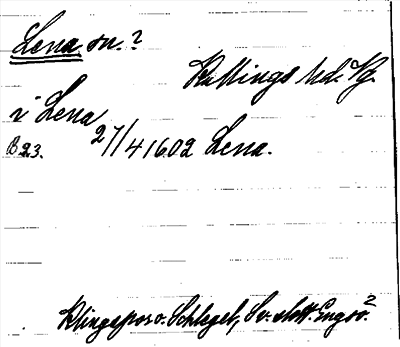 Lena sn.?
Kullings hd. Vg.
i Lena
B 23. 27/4 1602 Lena.
Klingspor o. Schlegel, Sv. slott. Engsö.²